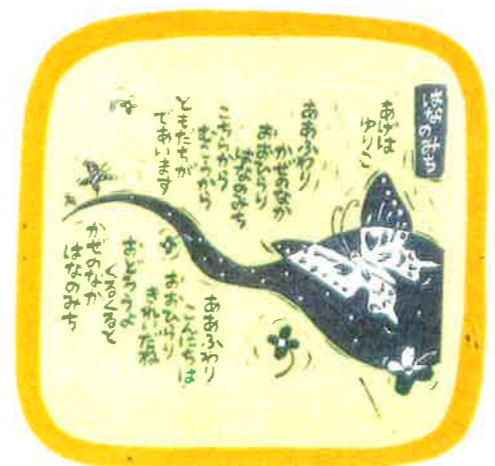 はなのみち
あげは
ゆりこ
ああふわり
かぜのなか
おおひらり
はなのみち
こちらから
むこうから
ともだちが
であいます
ああふわり
こんにちは
おおひらり
きれいだね
おどろうよ
くるくると
かぜのなか
はなのみち